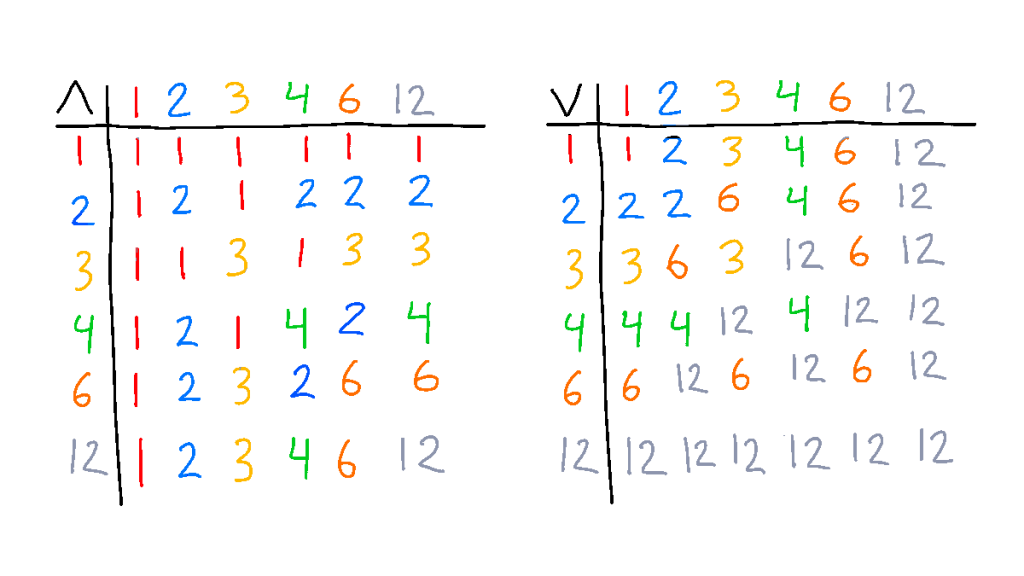 ∧ 1 2 3 4 6 12
1 1 1 1 1 1 1
2 1 2 1 2 2 2
3 1 1 3 1 3 3
4 1 2 1 4 2 4
6 1 2 3 2 6 6
12 1 2 3 4 6 12
∨ 1 2 3 4 6 12
1 1 2 3 4 6 12
2 2 2 6 4 6 12
3 3 6 3 12 6 12
4 4 4 12 4 12 12
6 6 12 6 12 6 12
12 12 12 12 12 12 12